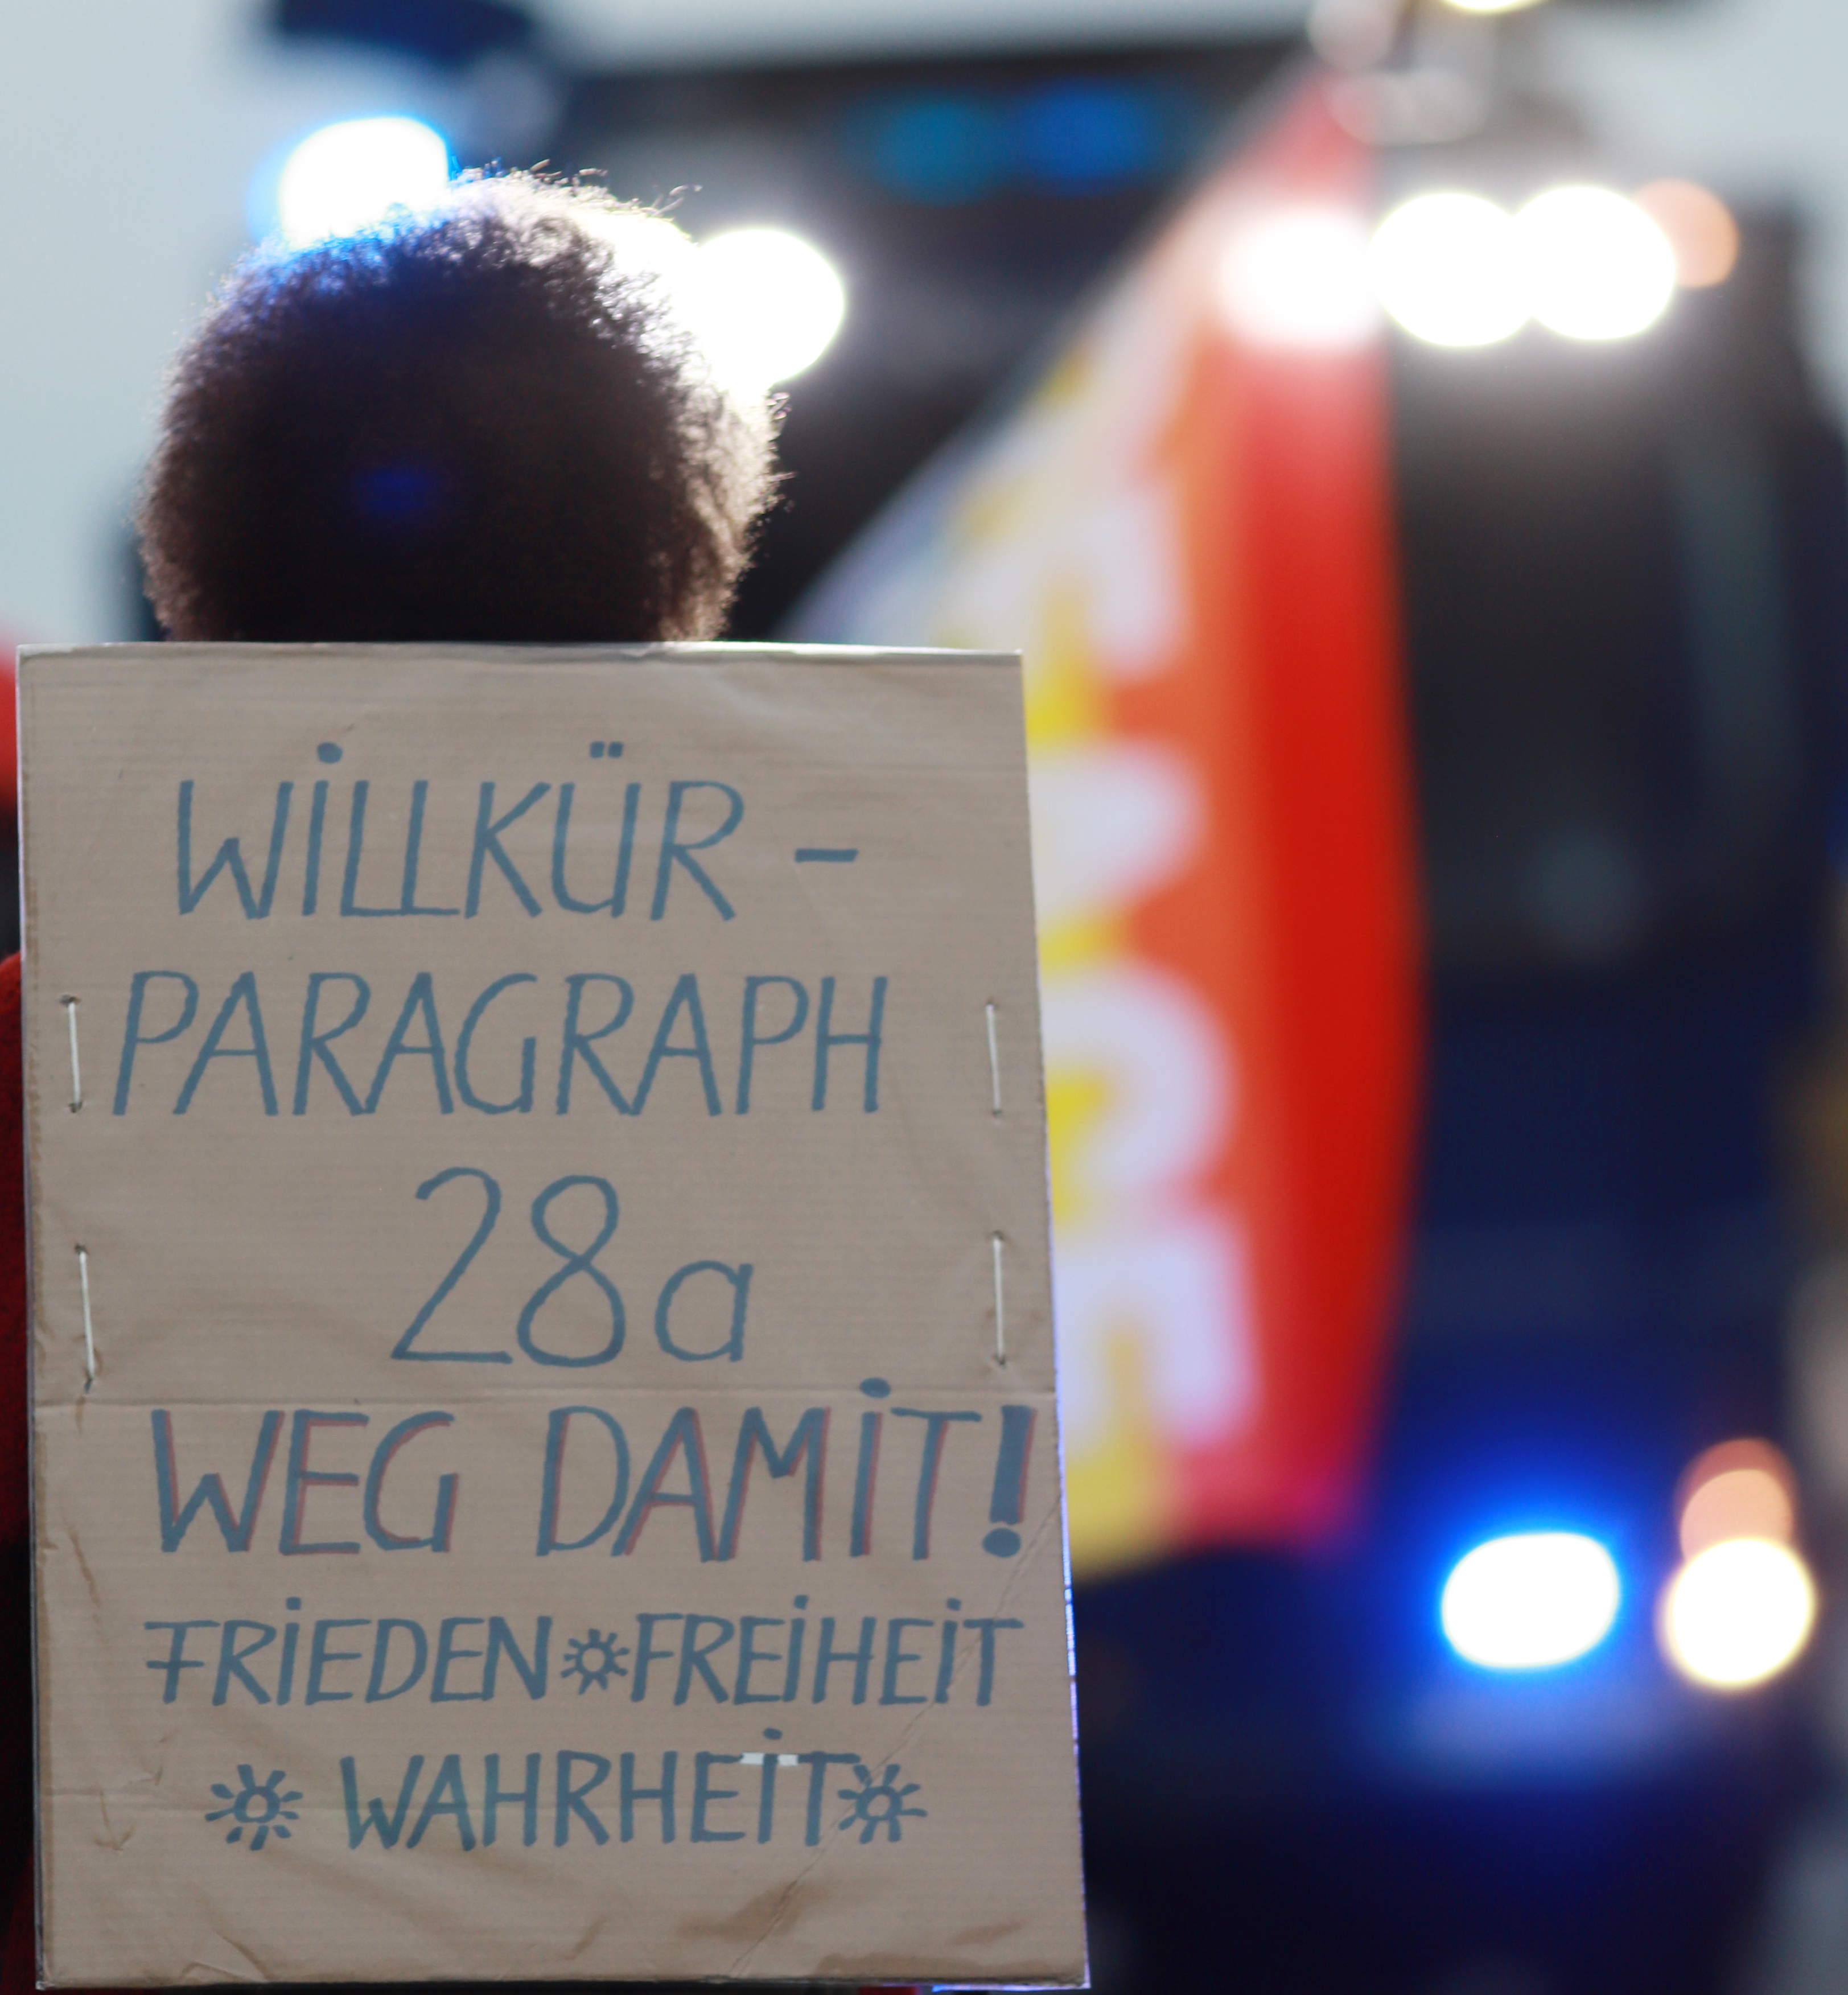 WILLKÜR-
PARAGRAPH
28a
WEG DAMIT!
FRIEDEN FREIHEIT
WAHRHEIT